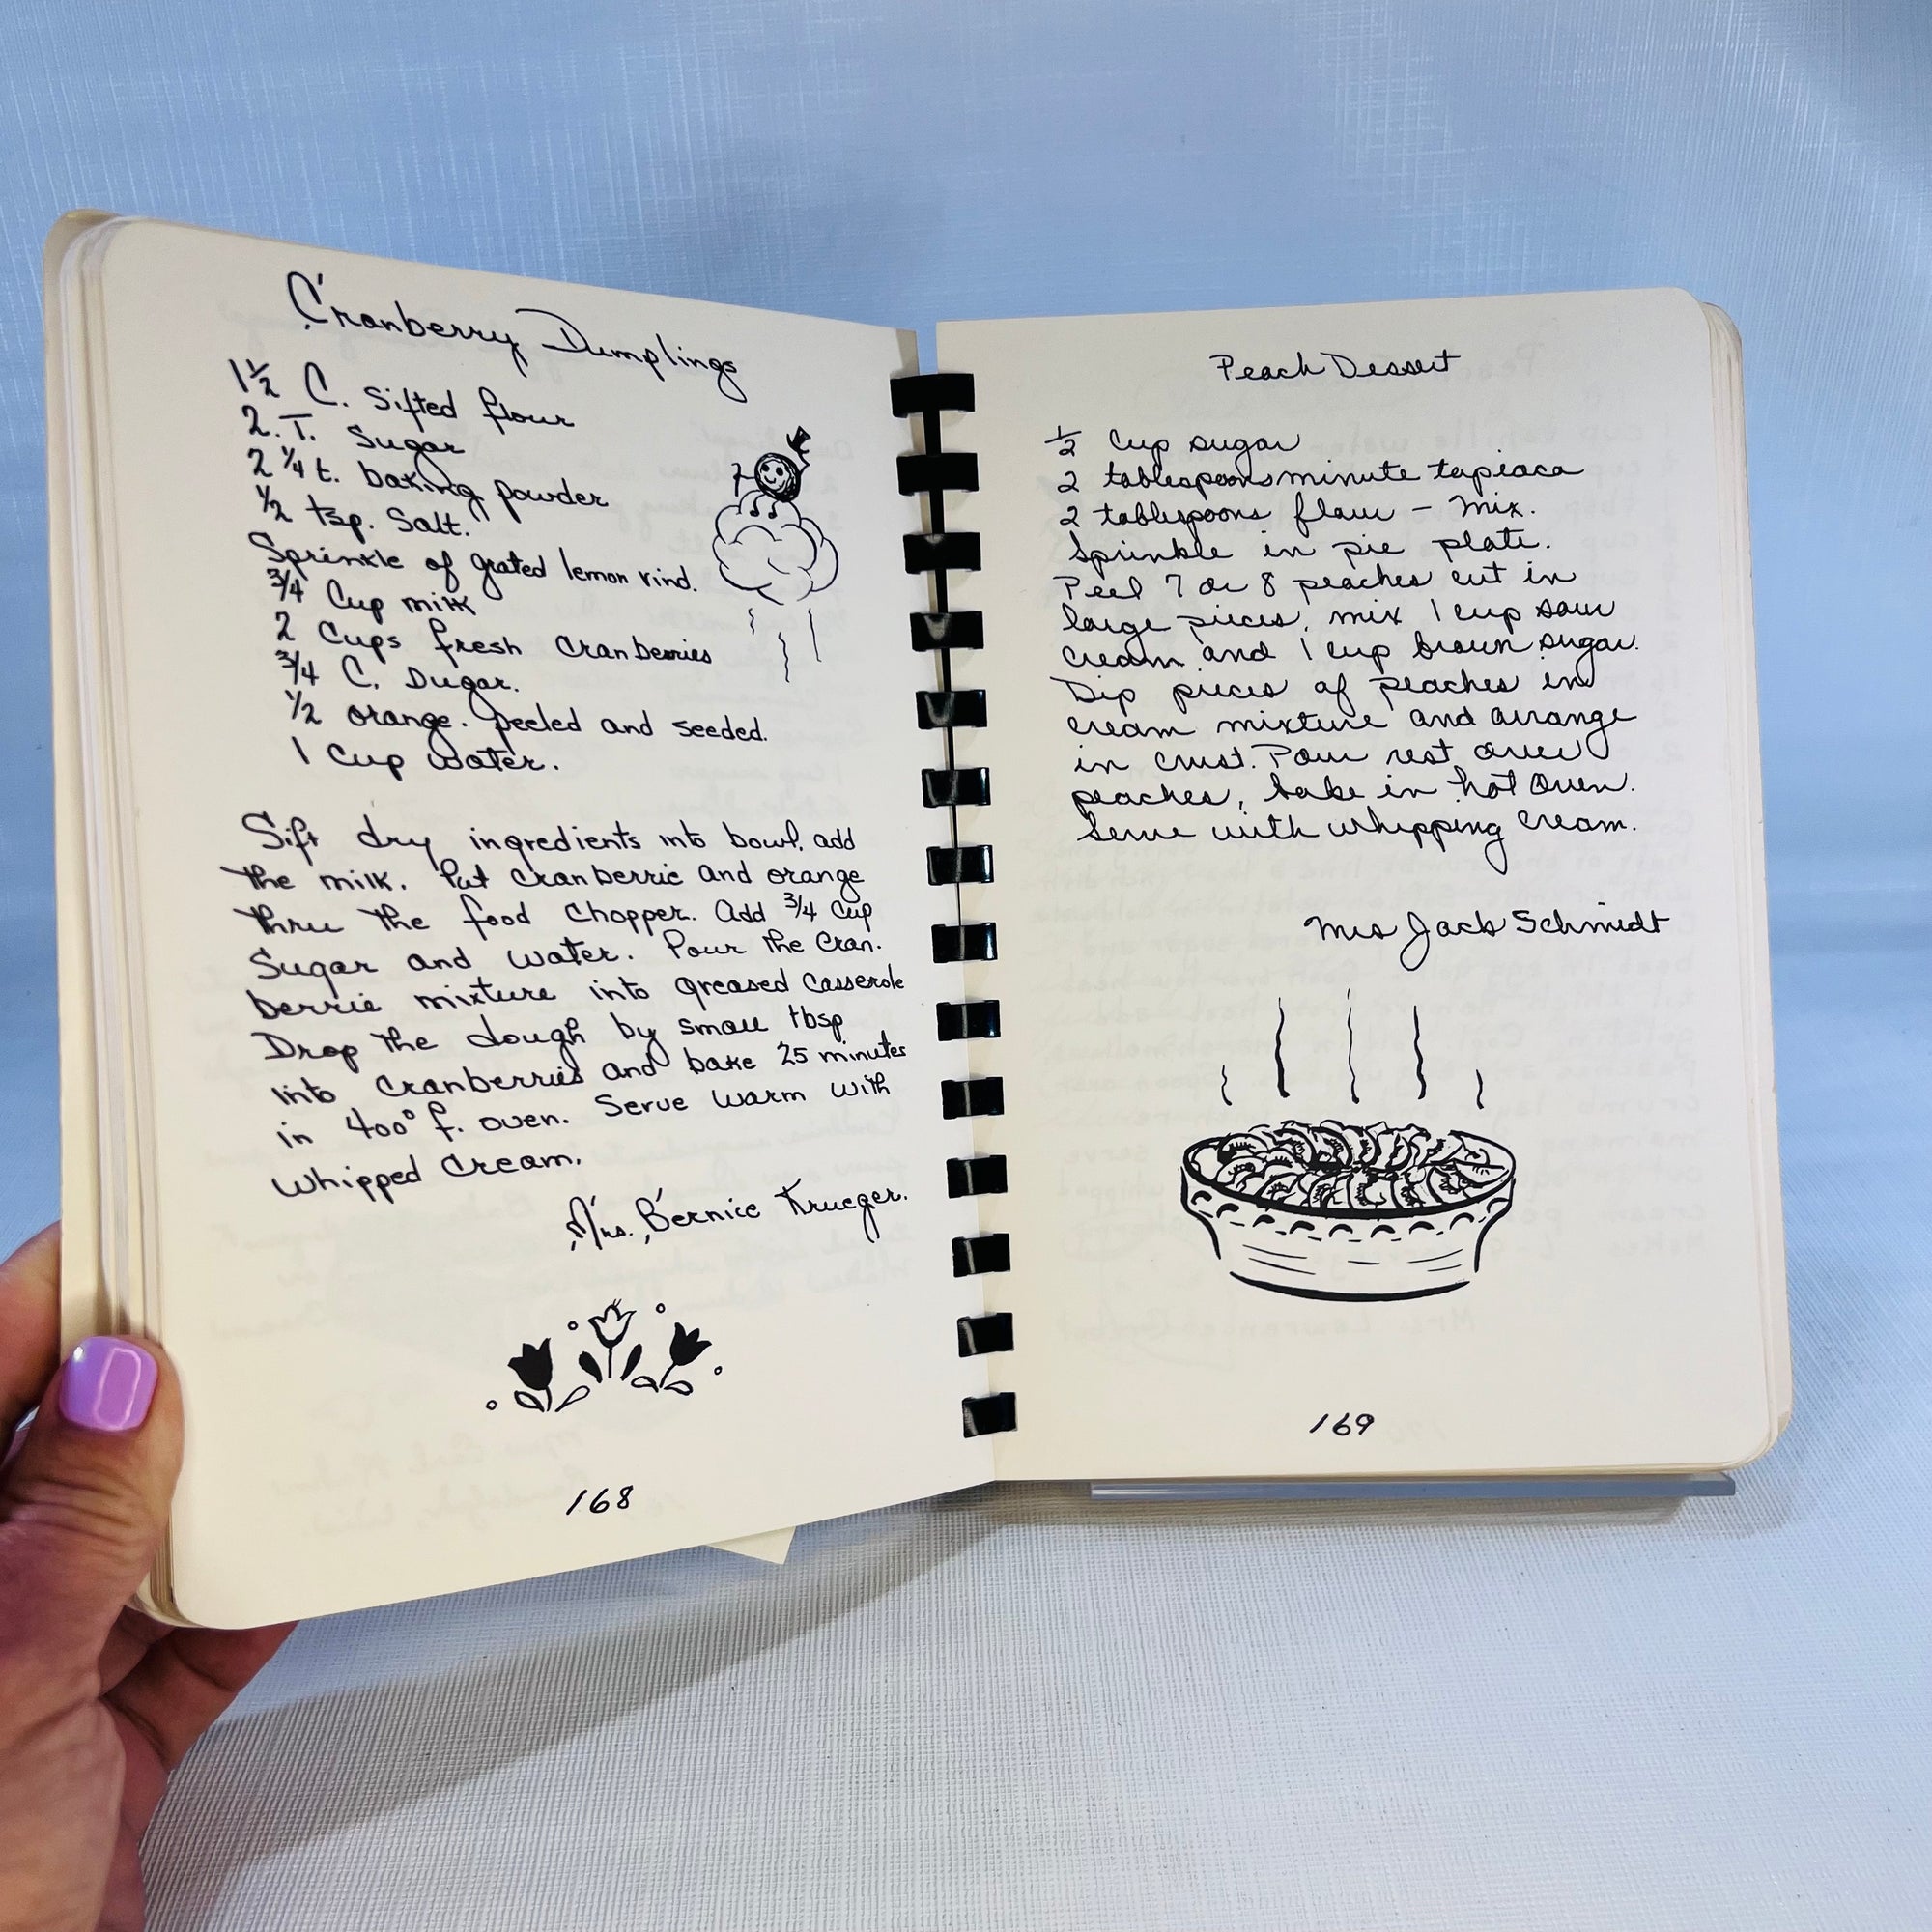 Cranberry Dumplings
1½ C. Sifted flour
2. T. Sugar
2 ¼ t. baking powder
½ tsp. Salt.
Sprinkle of grated lemon rind.
¾ Cup milk
2 Cups fresh Cranberries
¾ C. Sugar.
½ orange. peeled and seeded.
1 Cup water.
Sift dry ingredients into bowl, add
the milk. Put Cranberrie and orange
thru the food Chopper. Add ¾ Cup
Sugar and water. Pour the Cran.
berrie mixture into greased Casserole
Drop the dough by small tbsp
into Cranberries and bake 25 minutes
in 400° f. oven. Serve warm with
Whipped Cream.
Mrs. Bernice Krueger.
168
Peach Dessert
½ Cup sugar
2 tablespoons minute tapioca
2 tablespoons flour - Mix.
Sprinkle in pie plate.
Peel 7 or 8 peaches cut in
large pieces, mix 1 cup sour
cream and 1 cup brown sugar.
Dip pieces of peaches in
cream mixture and arrange
in crust. Pour rest over
peaches, bake in hot Oven.
Serve with whipping cream.
Mrs Jack Schmidt
169